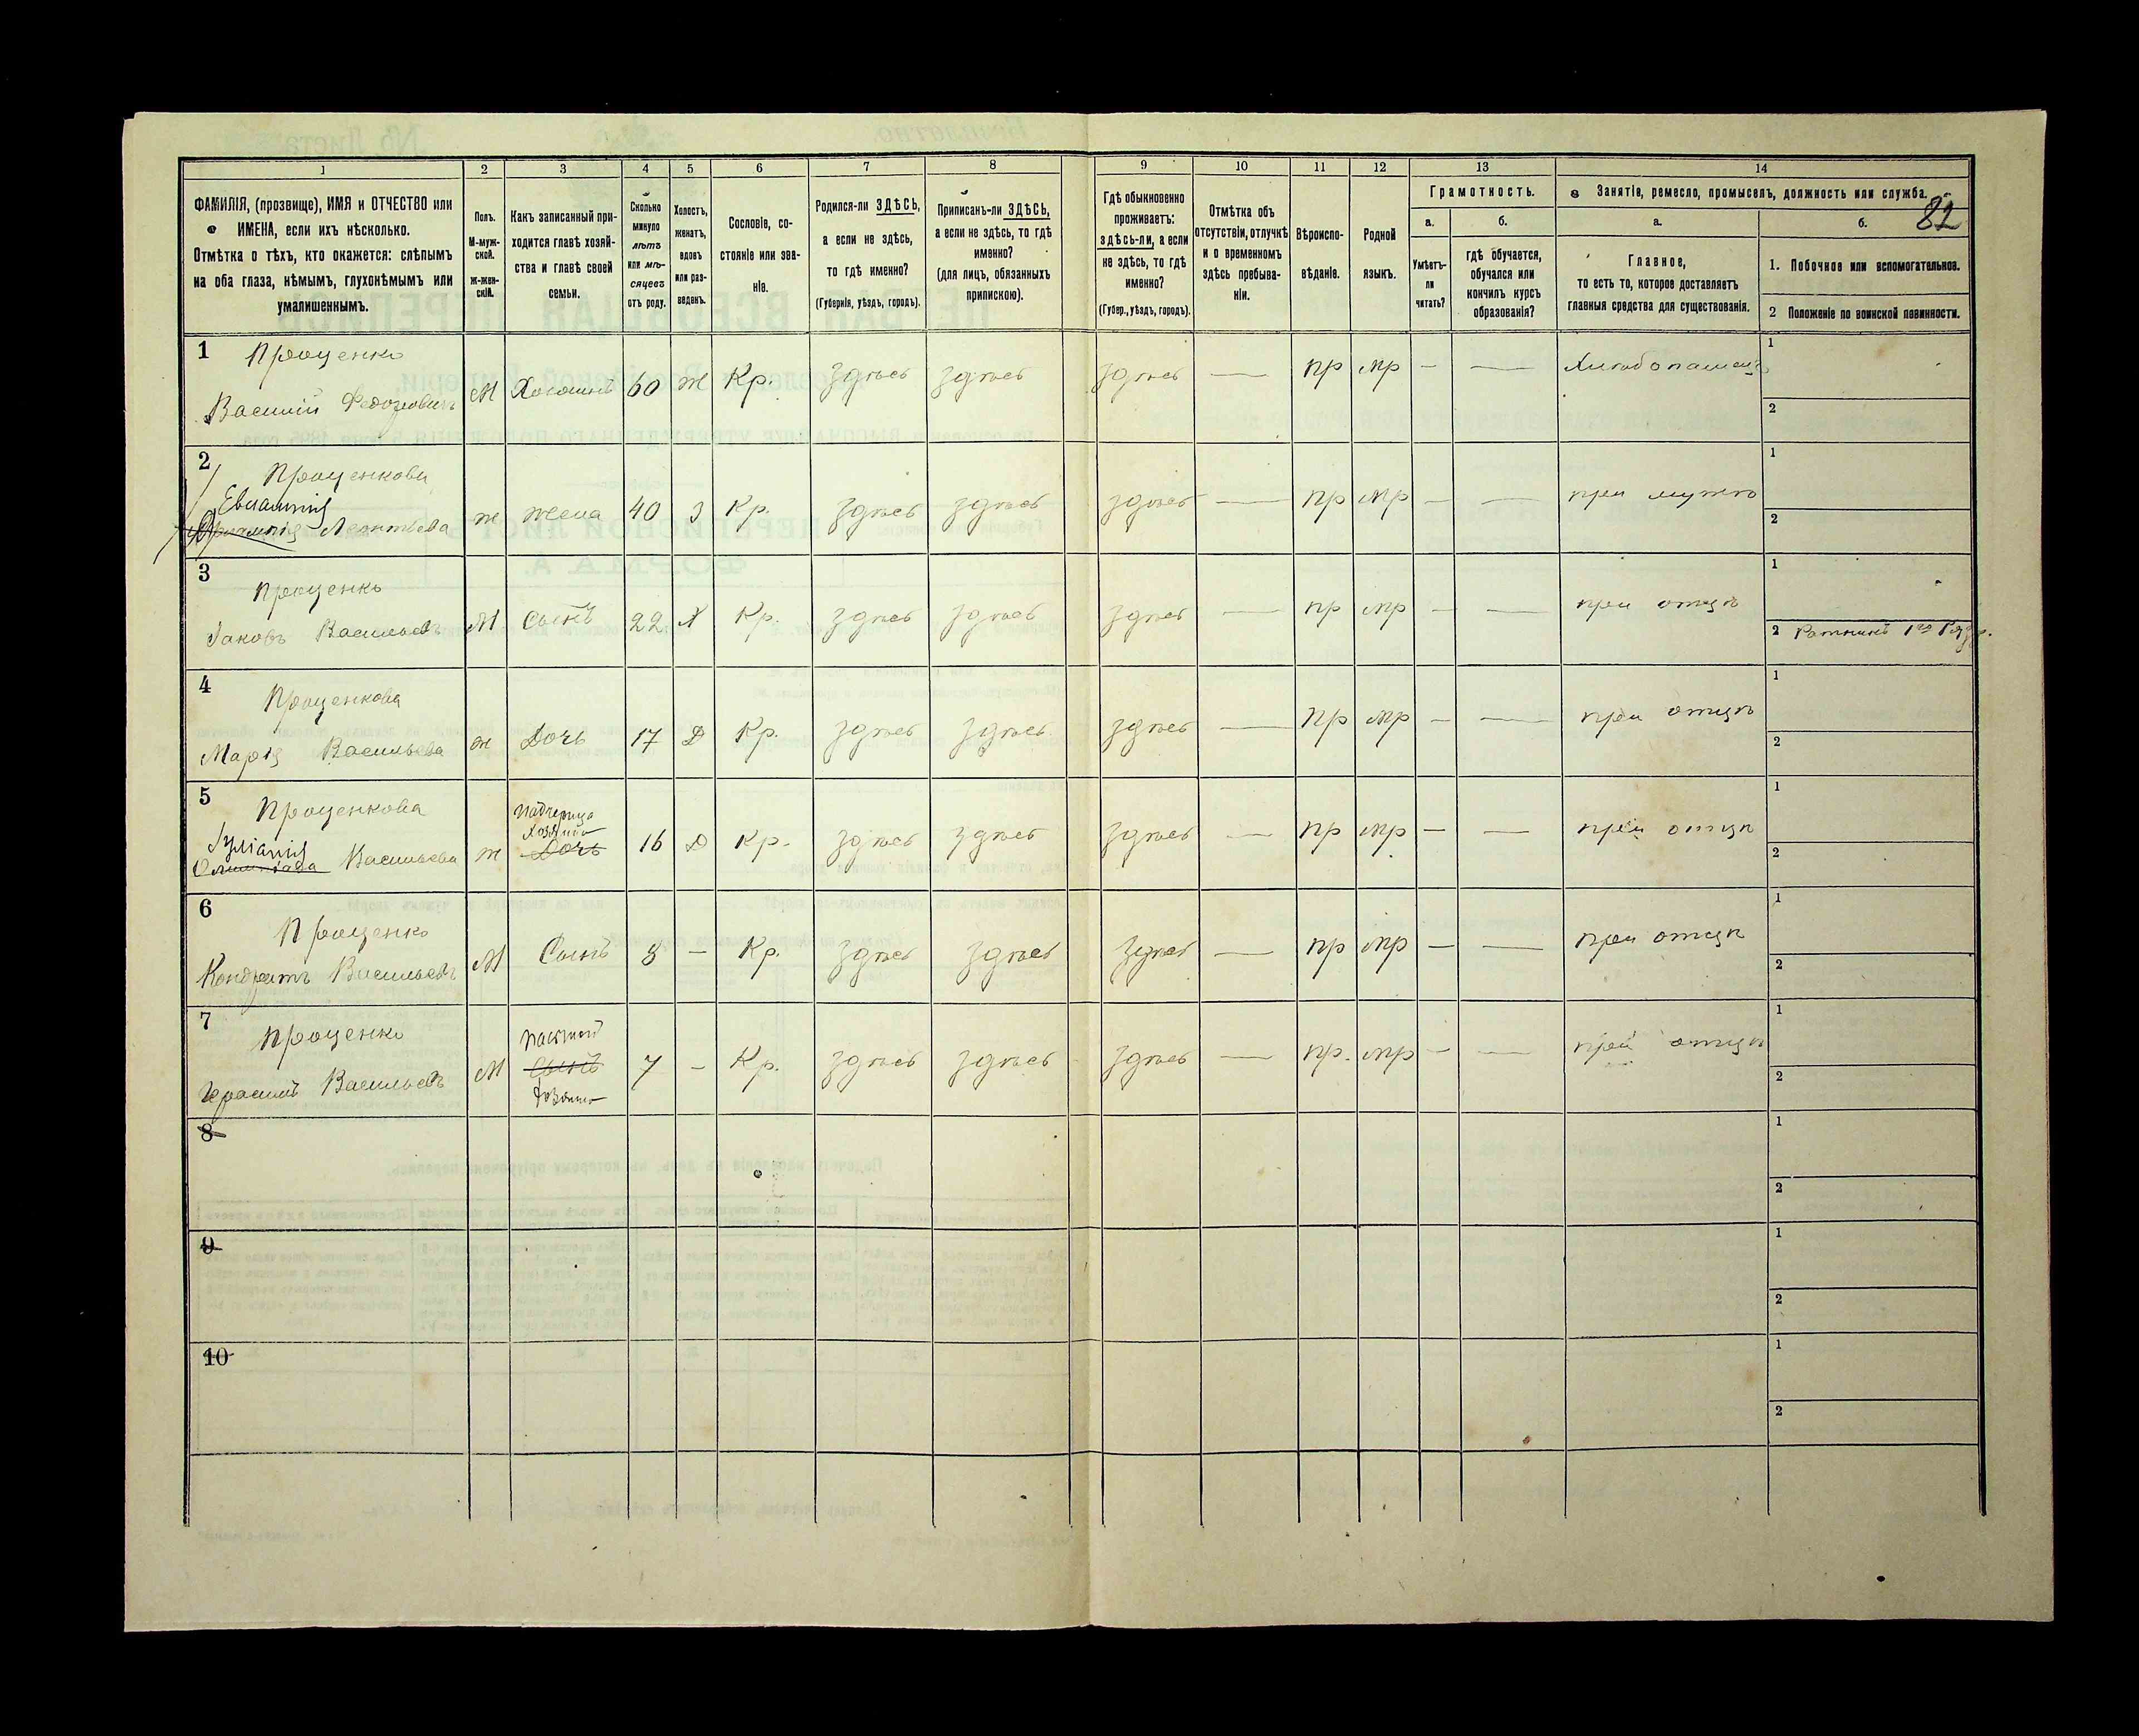 1 2 3 4 5 6 7 8 9 10 11 12 13 14
ФАМИЛІЯ, (прозвище), ИМЯ и ОТЧЕСТВО или
ИМЕНА, если ихъ нѣсколько.
Отмѣтка о тѣхъ, кто окажется: слѣпымъ
на оба глаза, нѣмымъ, глухонѣмымъ или
умалишеннымъ.
Полъ.
М-муж-
ской.
ж-жен-
скій.
Какъ записанный при-
ходится главѣ хозяй-
ства и главѣ своей
семьи.
Сколько
минуло
лѣтъ
или мѣ-
сяцевъ
отъ роду.
Холостъ,
женатъ,
вдовъ
или раз-
веденъ.
Сословіе, со-
стояніе или зва-
ніе.
Родился-ли ЗДѢСЬ,
а если не здѣсь,
то гдѣ именно?
(Губернія, уѣздъ, городъ).
Приписанъ-ли ЗДѢСЬ,
а если не здѣсь, то гдѣ
именно?
(для лицъ, обязанныхъ
припискою).
Гдѣ обыкновенно
проживаетъ:
здѣсь-ли, а если
не здѣсь, то гдѣ
именно?
(Губер., уѣздъ, городъ).
Отмѣтка объ
отсутствіи, отлучкѣ
и о временномъ
здѣсь пребыва-
ніи.
Вѣроиспо-
вѣданіе.
Родной
языкъ.
Грамотность.
а. б.
Умѣетъ-
ли
читать?
гдѣ обучается,
обучался или
кончилъ курсъ
образованія?
Занятіе, ремесло, промыселъ, должность или служба.
82
а. б.
Главное,
то есть то, которое доставляетъ
главныя средства для существованія.
1. Побочное или вспомогательное.
2 Положеніе по воинской повинности.
1 Проценко
Василій Федоровичъ М Хозяинъ 60 ж Кр. здѣсь здѣсь здѣсь — пр мр — — Хлѣбопашецъ
1
2
2 Проценкова
Евлампія
Леонтьева ж жена 40 З Кр. здѣсь здѣсь здѣсь — пр мр — — при мужѣ
1
2
3 Проценко
Іаковъ Васильевъ М Сынъ 22 Х Кр. здѣсь здѣсь здѣсь — пр мр — — при отцѣ
1
2 Ратникъ 1го Разр.
4 Проценкова
Марія Васильева ж Дочь 17 Д Кр. здѣсь здѣсь здѣсь — пр мр — — при отцѣ
1
2
5 Проценкова
Іуліанія
Васильева ж Падчерица
Дочь 16 Д Кр. здѣсь здѣсь здѣсь — пр мр — — при отцѣ
1
2
6 Проценко
Кондратъ Васильевъ М Сынъ 8 — Кр. здѣсь здѣсь здѣсь — пр мр — — при отцѣ
1
2
7 Проценко
Герасимъ Васильевъ М
Сынъ 7 — Кр. здѣсь здѣсь здѣсь — пр. мр — — при отцѣ
1
2
8
1
2
9
1
2
10
1
2